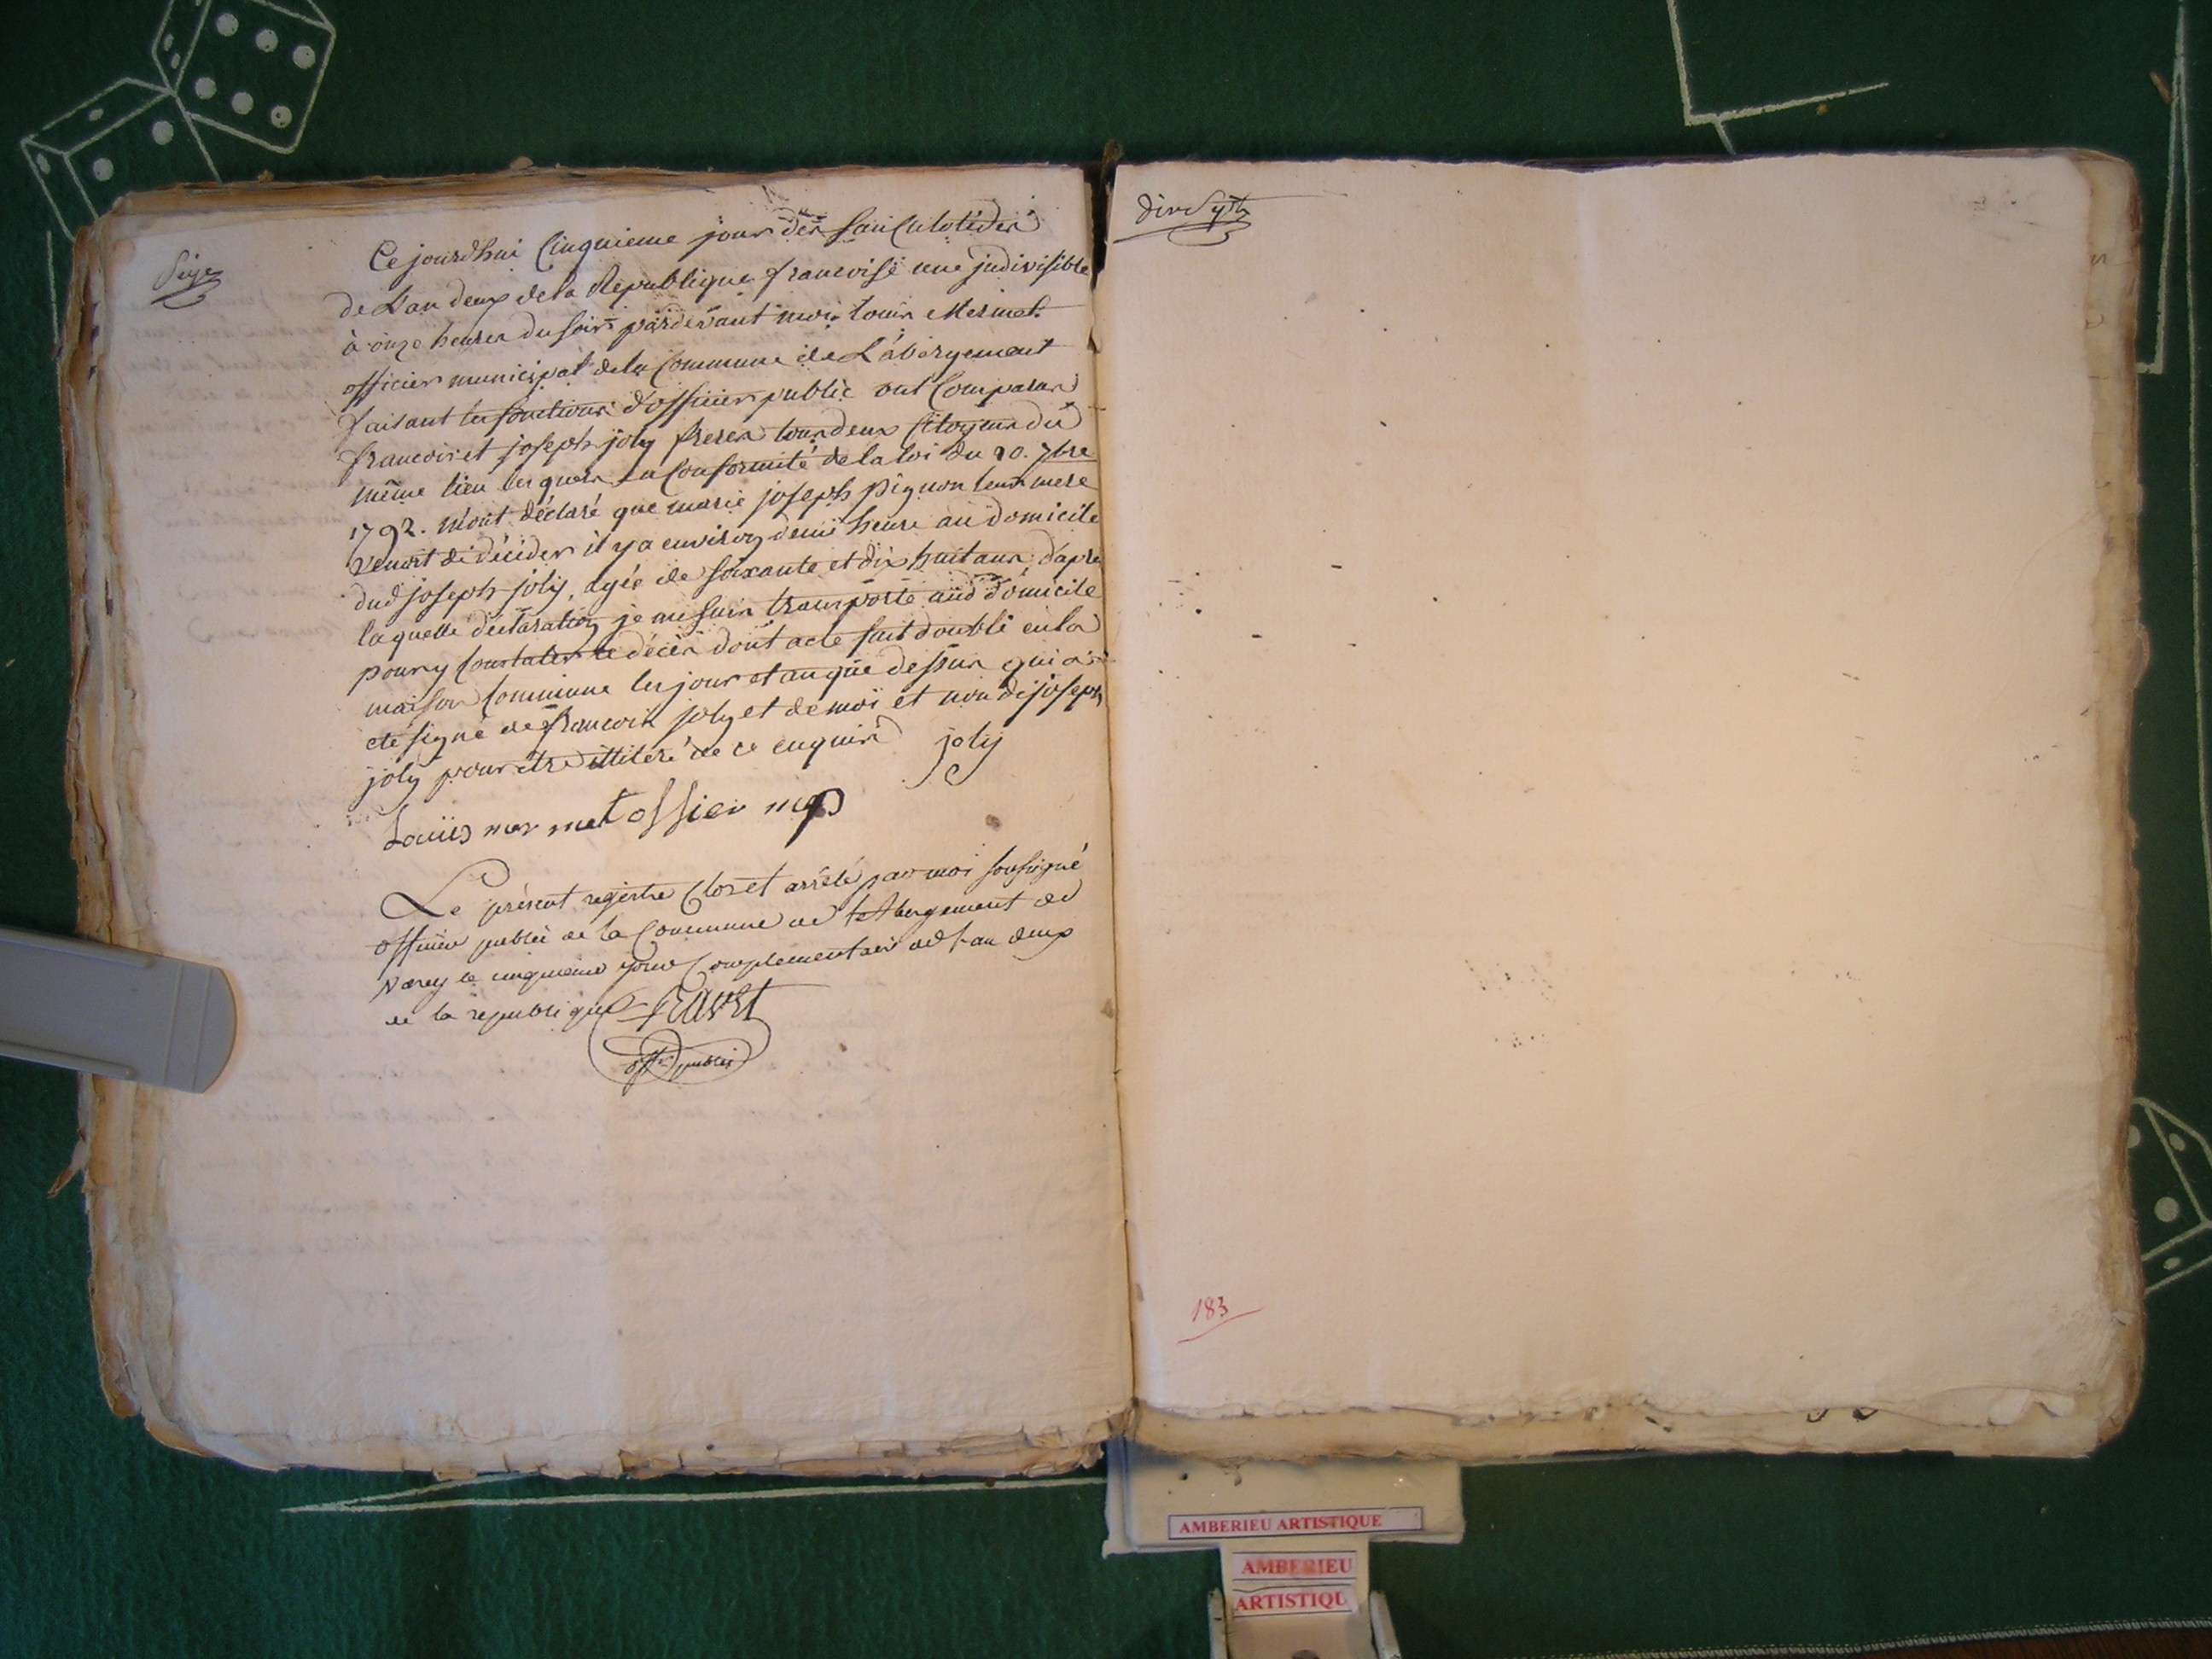 Seize
Ce jourdhui Cinquieme jour des Sanculotédes
de L'an deux dela Republique francoise une judivisible
à onze heures du soir pardevant moi Louis Mermet
officier municipal dela Commune de L'abergement
faisant les fonctions d'officier public ont Comparus
francois et joseph joly freres tous deux Citoyens du
même lieu les quels En Conformité de la loi du 20. 7bre
1792. m'ont déclaré que marie joseph pignon leur mere
venoit de décider il y a environ demi heure au domicile
dud joseph joly, agée de soixante et dix huit ans, d'apres
la quelle déclaration je me suis transporté aud domicile
pour y Constater le décès dont acte fait double en la
maison Commune les jour et an que dessus qui a
eté signé de francois joly et de moi et non de joseph
joly pour etre illiteré de ce enquis joly
Louiis mer met offier mp
Le présent registre Clos et arrêté par moi soussigné
officier public de la Commune de l'Abergement de
Varey le cinquieme jour Complementaire de l'an deux
de la republique
offr public
dix Sept
183
AMBERIEU ARTISTIQUE
AMBERIEU
ARTISTIQU